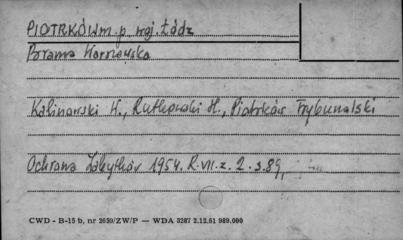 PIOTRKÓW m. p. woj. Łódź
Brama
Kalinowski H., Rutkowski H., Piotrków Trybunalski
Ochrona Zabytków 1954. R. VII. z. 2. s. 89,
CWD - B-15 b, nr 2659/ZW/P — WDA 3287 2.12.61 989.000